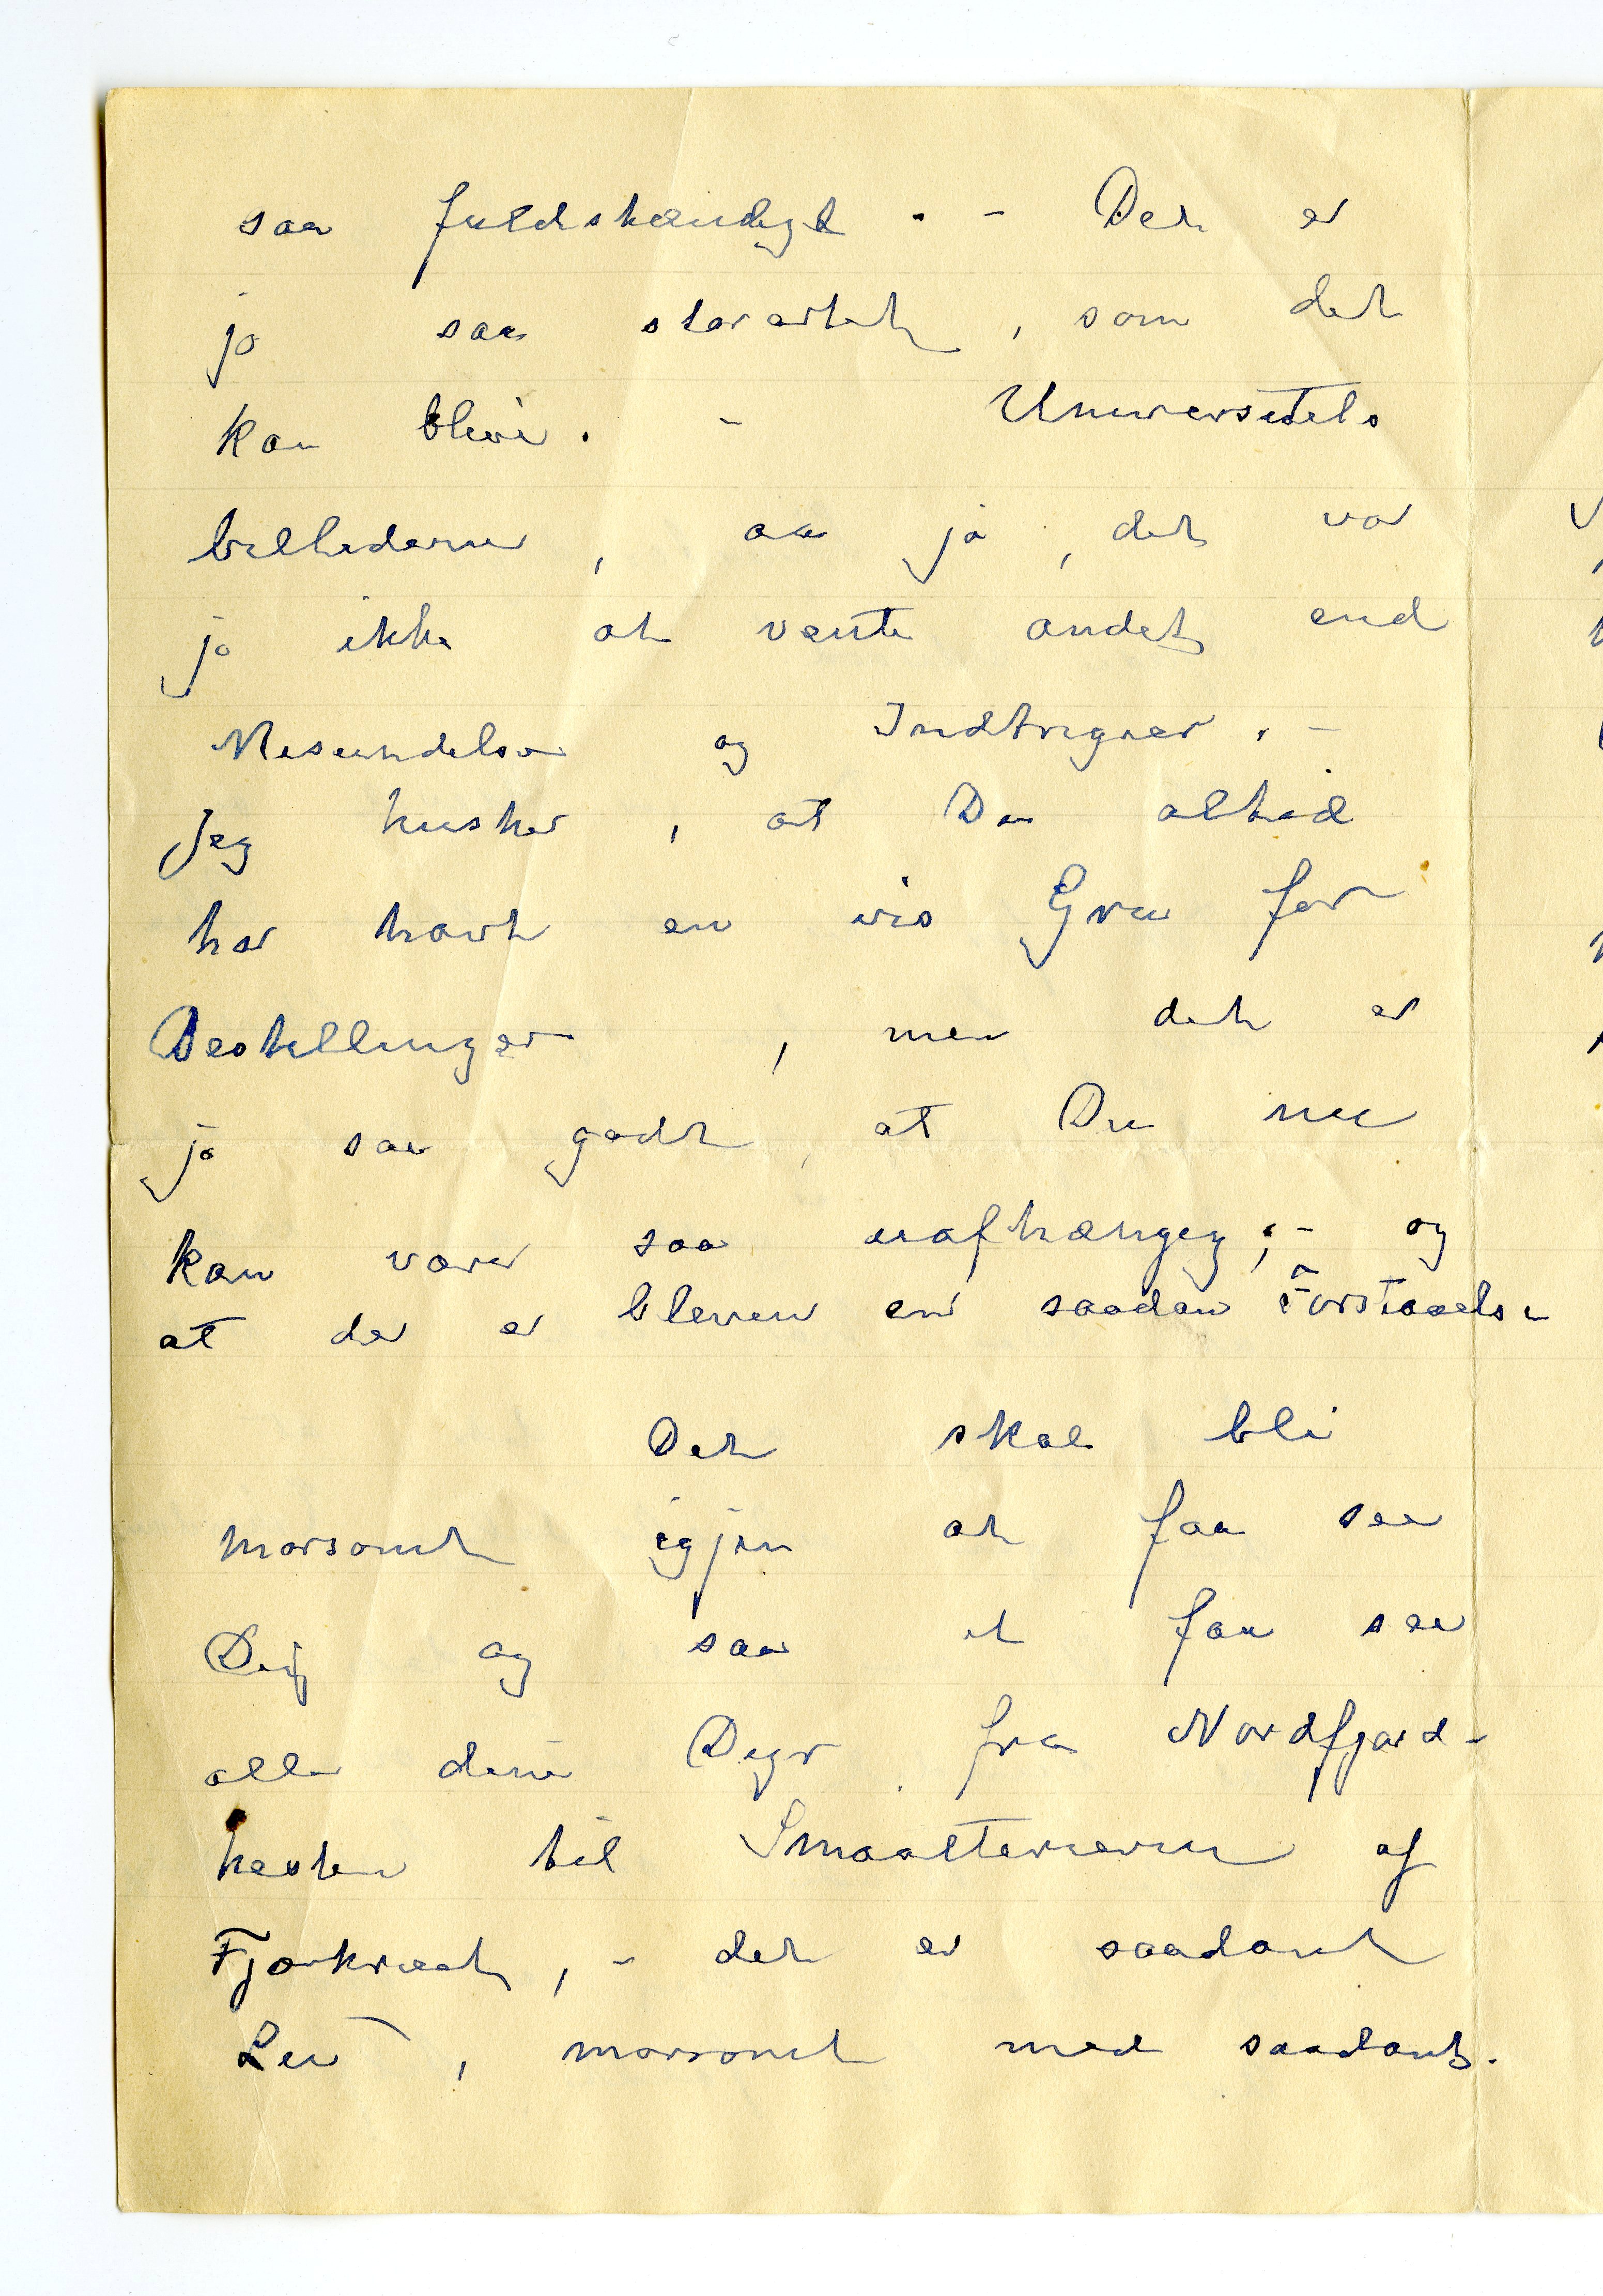 saa fuldstændigt . – Det er
jo saa storartet , som det
kan blive . – Universitets
billederne , aa ja , det var
jo ikke at vente andet end
Misundelse og Indtriger . –
Jeg husker , at Du altid
har havt en vis Gru for
Bestillinger , men det er
jo saa godt , at Du nu
kan være saa uafhængig ; – og
at der er bleven en saadan Forstaaelse
Det skal bli
morsomt igjen at faa see
Dig og saa at faa see
alle dine Dyr fra Nordfjord-
hesten til Smaatterierne af
Fjærkræet , – det er saadant
Liv , morsomt med saadant.